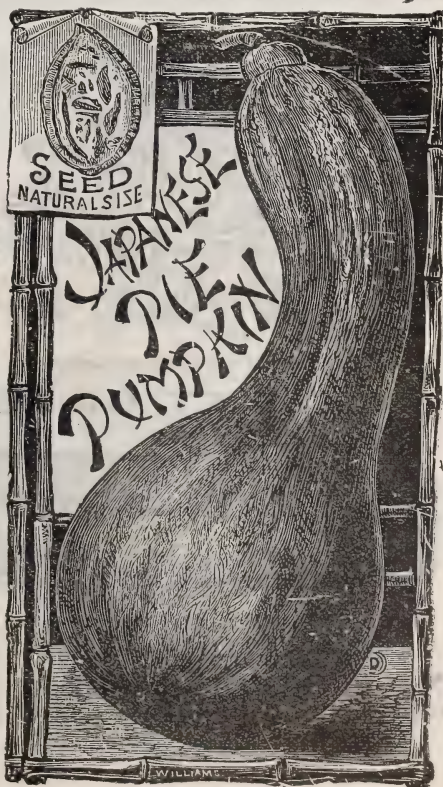 SEED
NATURAL SISE
JAPANESE
PIE
PUMPKIN
WILLIAMS.
D